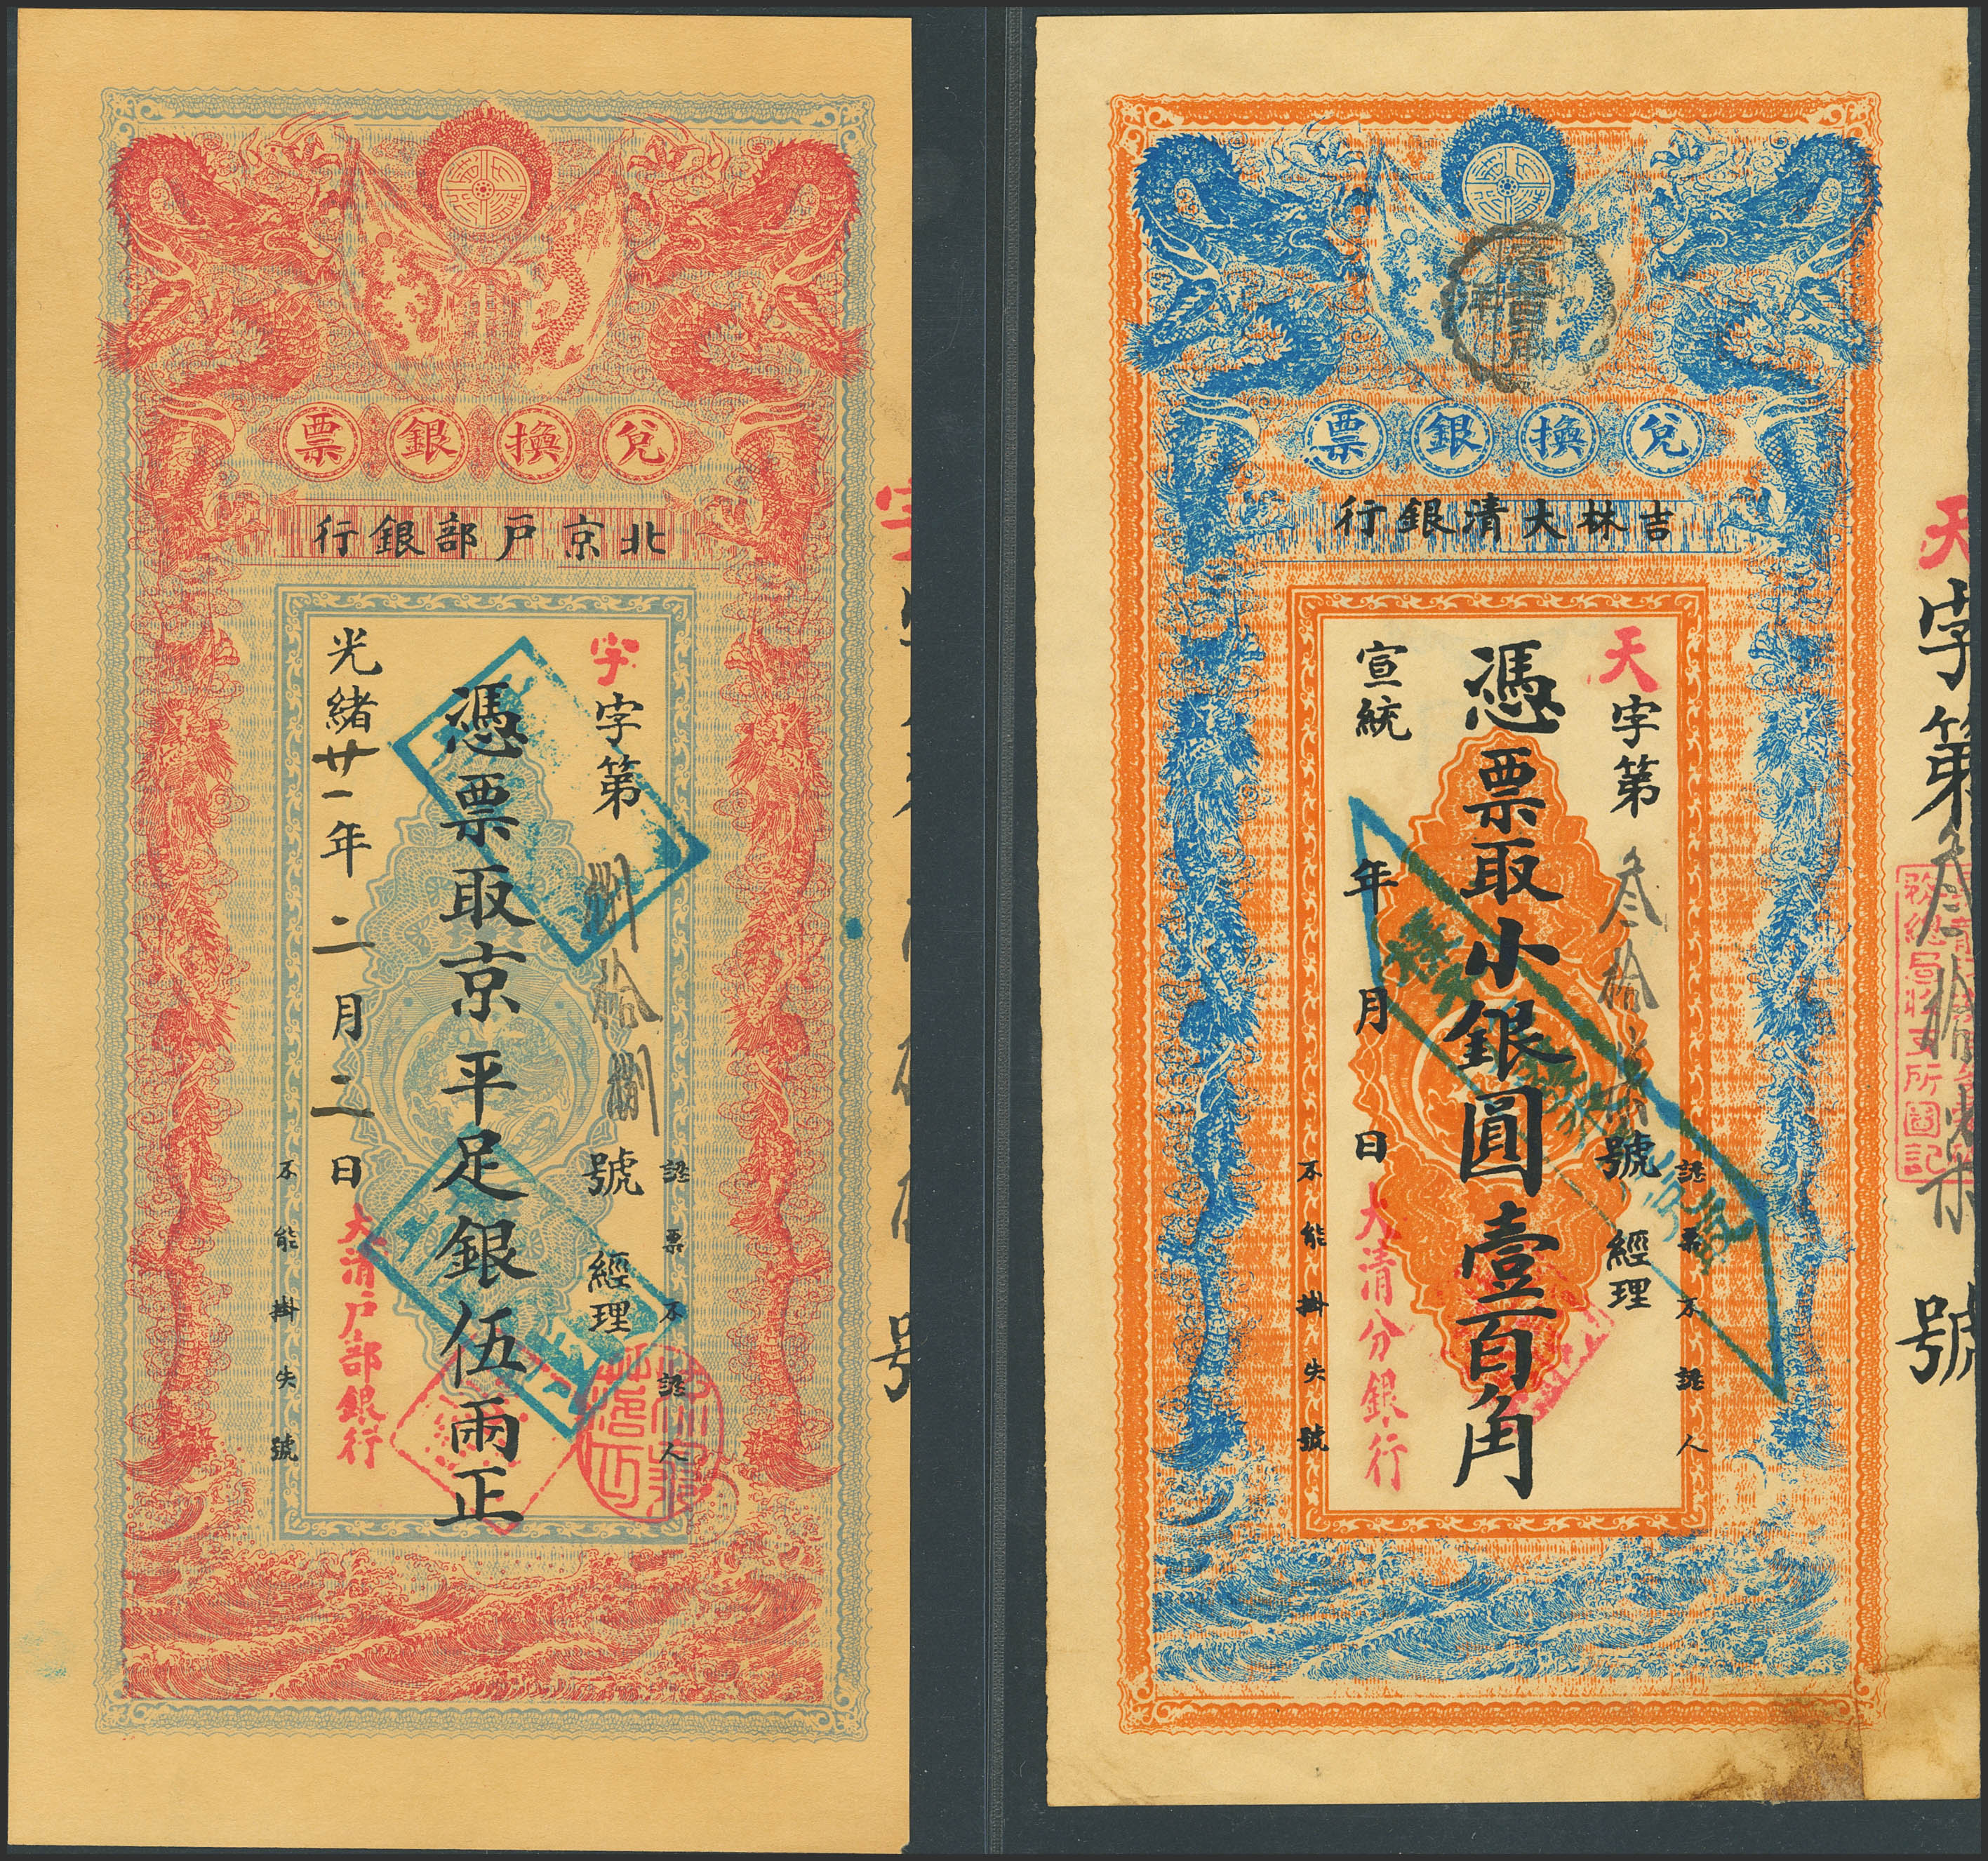 兌換銀票
北京戶部銀行
宇字第捌拾捌號 經理
憑票取京平足銀伍兩正
光緒廿一年二月二日
大清戶部銀行
認票不認人
不能掛失號
號
兌換銀票
吉林大清銀行
天字第叁拾柒號 經理
憑票取小銀圓壹百角
宣統 年 月 日
大清分銀行
認票不認人
不能掛失號
天字第叁拾柒號